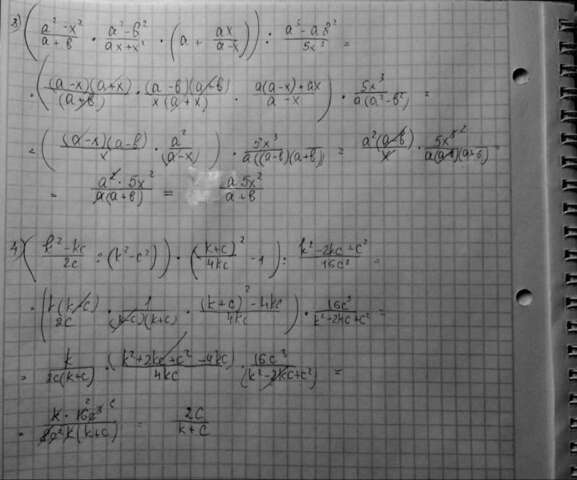 3) ( (a² - x²)/(a + b) · (a² - b²)/(ax + x²) · ( a + ax/(a - x) ) ) : (a³ - ab²)/(5x³) =
· ( (a - x)(a + x)/(a + b) · (a - b)(a + b)/(x(a + x)) · (a(a - x) + ax)/(a - x) ) · 5x³/(a(a² - b²)) =
= ( (a - x)(a - b)/x · a²/(a - x) ) · 5x³/(a((a - b)(a + b))) = a²(a - b)/x · 5x³ ²/(a(a - b)(a + b)) =
= a² · 5x²/(a(a + b)) = a 5x²/(a + b)
4) ( (k² - kc)/(2c) : (k² - c²) ) · ( (k + c)²/(4kc) - 1 ) : (k² - 2kc + c²)/(16c³) =
· ( k(k - c)/(2c) · 1/((k - c)(k + c)) · ((k + c)² - 4kc)/(4kc) ) · 16c³/(k² - 2kc + c²) =
= k/(2c(k + c)) · (k² + 2kc + c² - 4kc)/(4kc) · 16c³/(k² - 2kc + c²) =
· k · 16c³ ² c/(8c² k(k + c)) = 2c/(k + c)